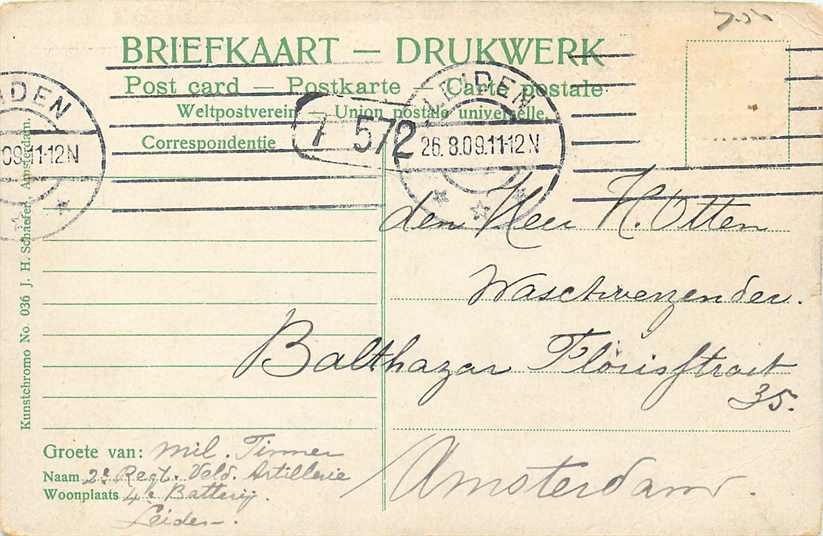 BRIEFKAART — DRUKWERK
Post card — Postkarte — Carte postale
Weltpostverein — Union postale universelle
Correspondentie
LEIDEN
26.8.09.11-12N
572
IDEN
09.11-12N
den Heer H. Otten
Balthazar Florisstraat
35.
Amsterdam.
Groete van: mil. Timmer
Naam 2e Regt. Veld. Artillerie
Woonplaats 4e Batterij.
Leiden.
Kunstchromo No. 036 J. H. Schaefer, Amsterdam.